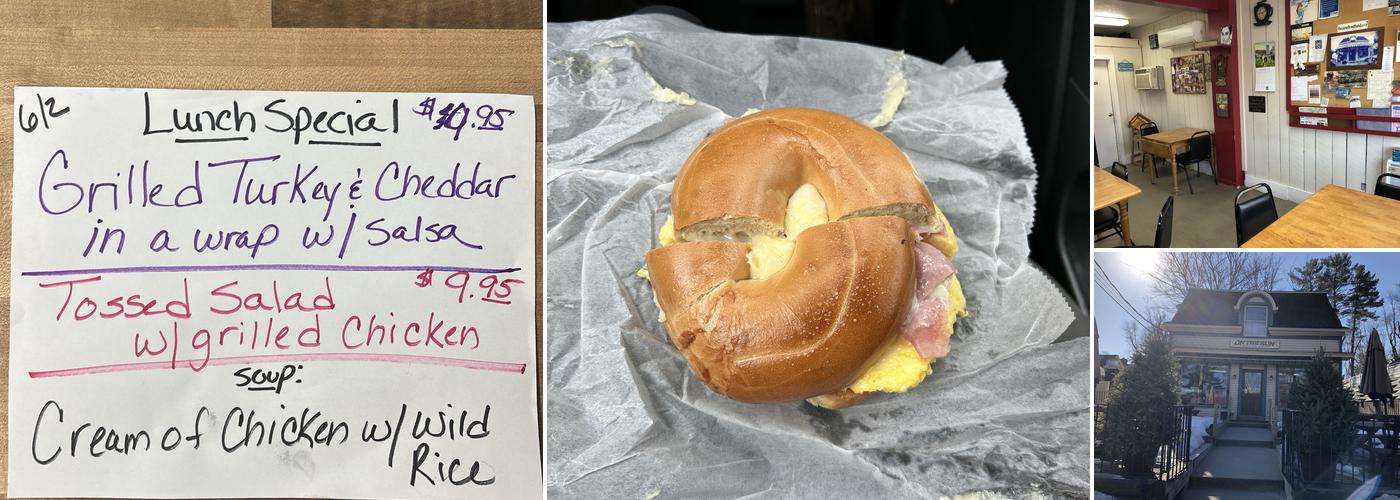 6/2 Lunch Special $10.95
Grilled Turkey & Cheddar
in a wrap w/ Salsa
Tossed Salad $9.95
w/grilled Chicken
soup:
Cream of Chicken w/ Wild
Rice
ON THE RUN